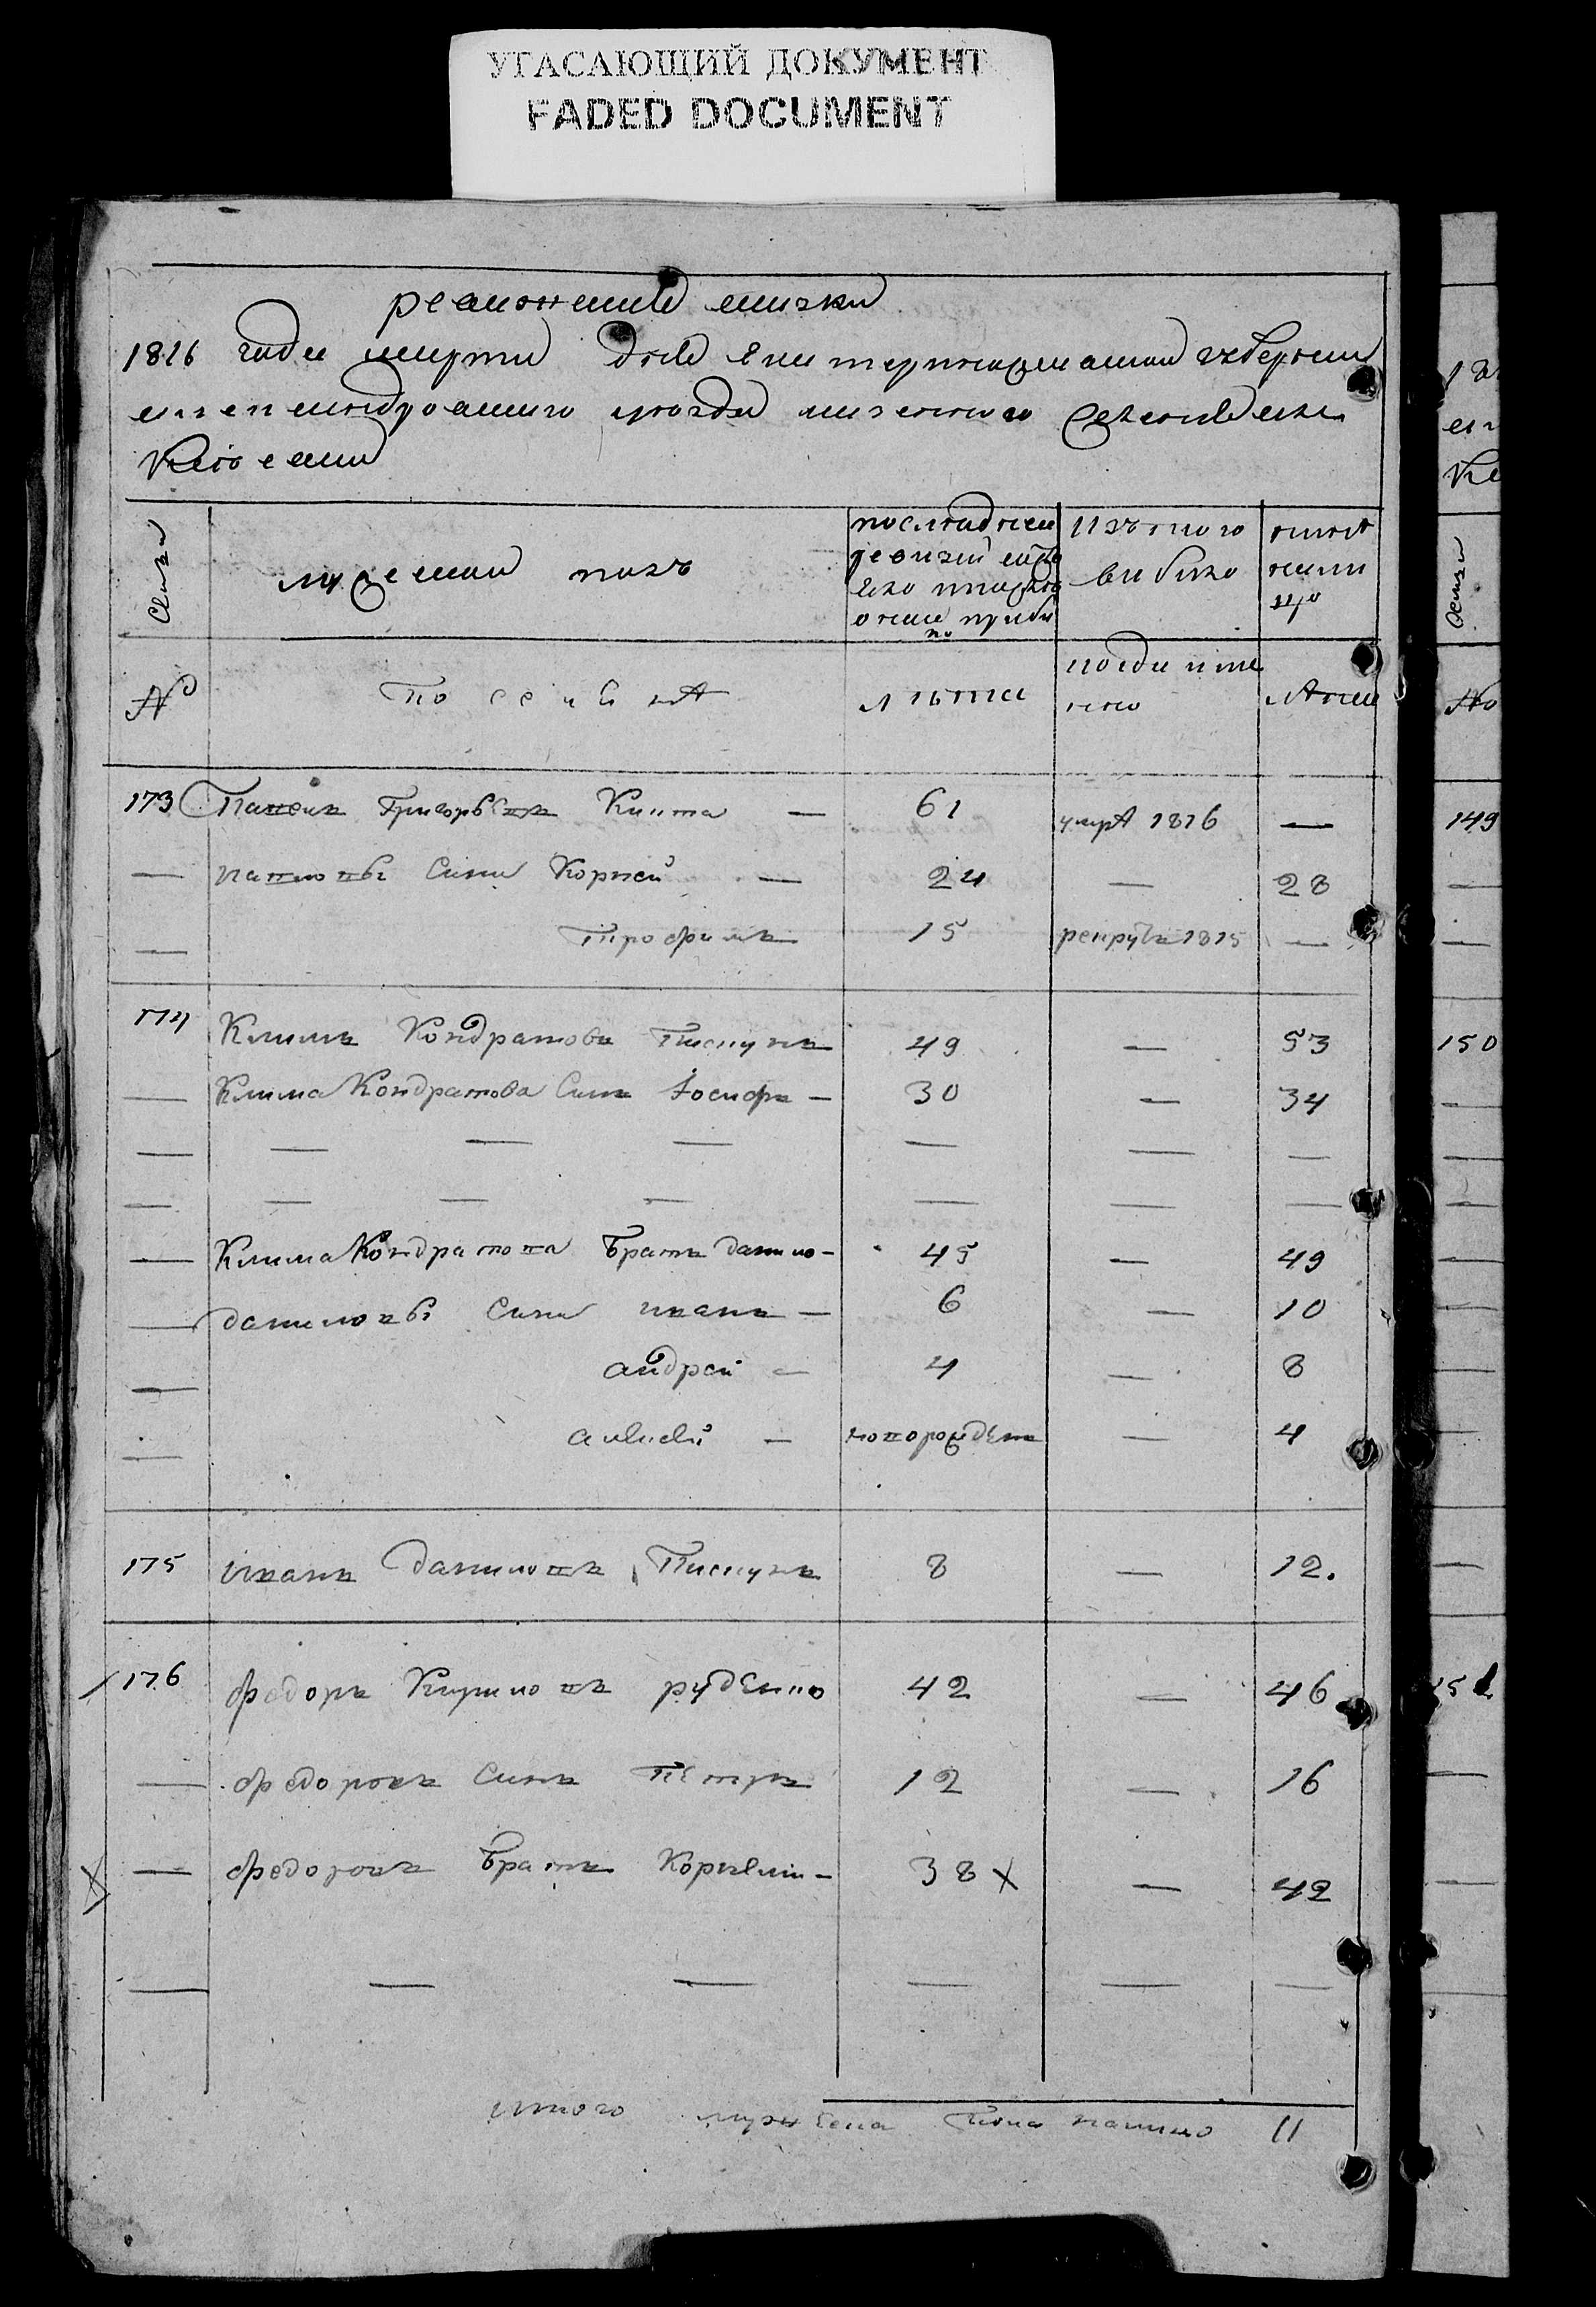 УГАСАЮЩИЙ ДОКУМЕНТ
FADED DOCUMENT
1816 года марта дня Екатеринославской губернии
уезда казенного селения
мужеской полъ
последней ревизии состояло и после оной прибыло
изъ того выбыло
ныне на лицо
№
По семья
лета
когда имянно
лета
173 Павелъ Григорьевъ Кихта — 61 умре 1816 —
— Павловы сыны Корней — 24 — 28
— Трофимъ 15 рекрутъ 1815 —
174 Климъ Кондратовъ Пискунъ 49 — 53
— Клима Кондратова сынъ Іосифъ — 30 — 34
— — — — — — —
— — — — — — —
— Клима Кондратова братъ данило — 45 — 49
— даниловы сыны иванъ — 6 — 10
— андрей — 4 — 8
— алексей — новорожденъ — 4
175 иванъ даниловъ Пискунъ 8 — 12.
176 федоръ Кириловъ руденко 42 — 46
— федоровъ сынъ Петръ 12 — 16
— федоровъ братъ Корнелий — 38 х — 42
— — — — — —
итого мужеска пола налицо 11
149
150